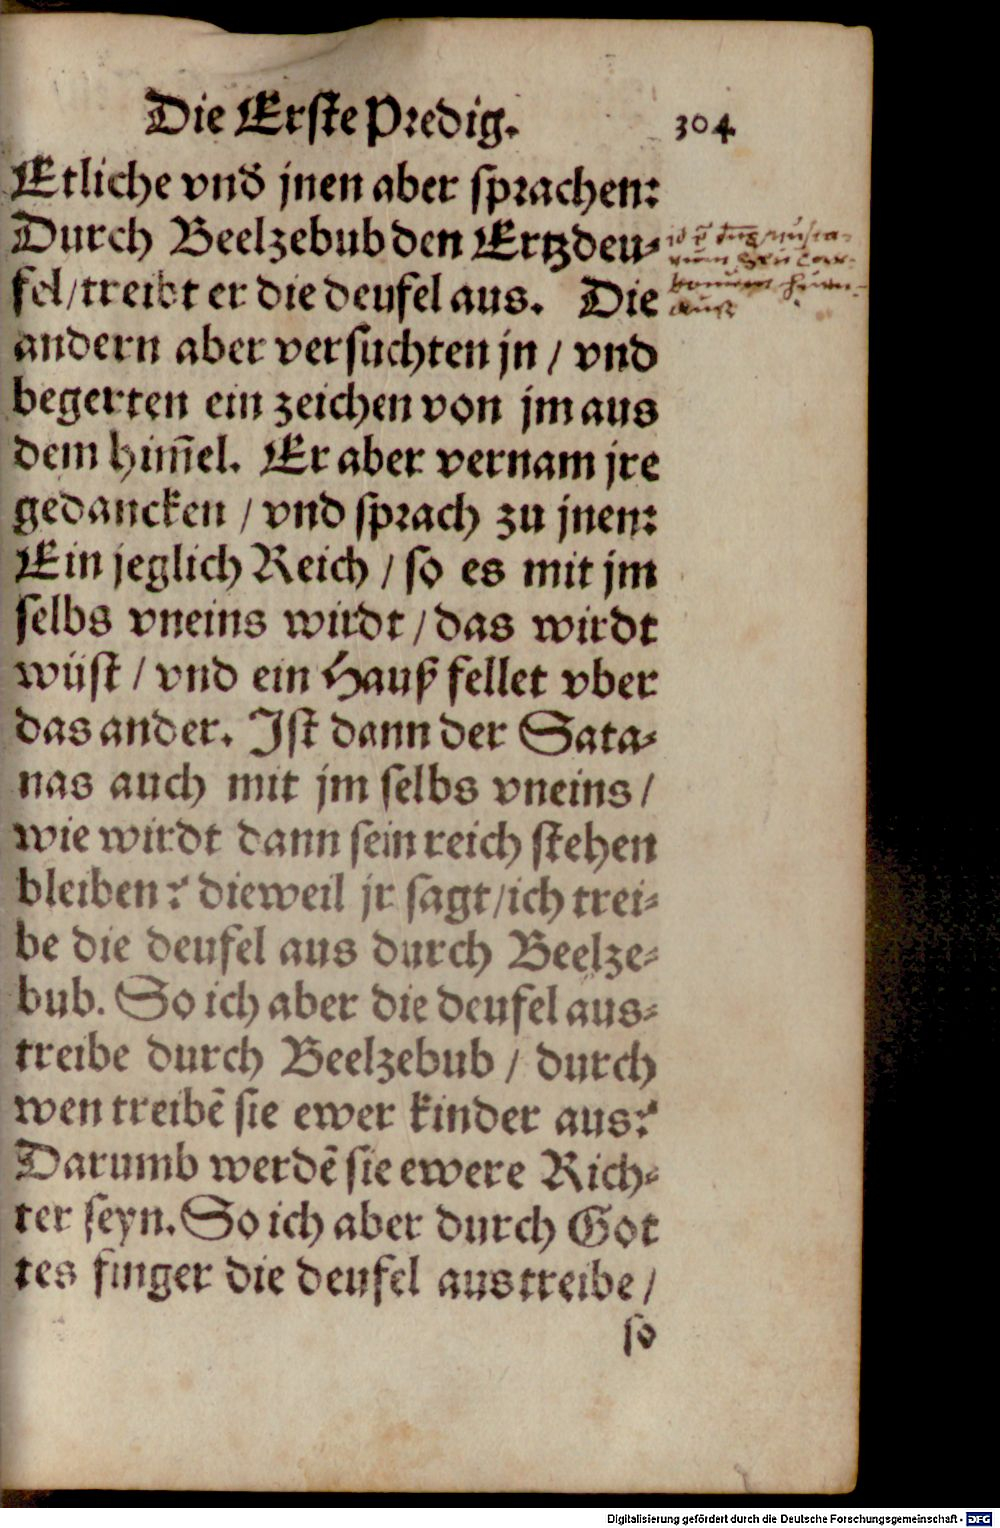 Die Erste Predig. 304
Etliche vnd̄ jnen aber sprachen:
Durch Beelzebub den Ertzdeu⸗
fel/treibt er die deufel aus. Die
andern aber versuchten jn / vnd
begerten ein zeichen von jm aus
dem him̄el. Er aber vernam jre
gedancken / vnd sprach zu jnen:
Ein jeglich Reich / so es mit jm
selbs vneins wirdt / das wirdt
wüst / vnd ein Hauß fellet vber
das ander. Ist dann der Sata⸗
nas auch mit jm selbs vneins /
wie wirdt dann sein reich stehen
bleiben? dieweil jr sagt/ich trei⸗
be die deufel aus durch Beelze⸗
bub. So ich aber die deufel aus⸗
treibe durch Beelzebub / durch
wen treibẽ sie ewer kinder aus?
Darumb werdẽ sie ewere Rich⸗
ter seyn. So ich aber durch Got
tes finger die deufel austreibe /
so
Digitalisierung gefördert durch die Deutsche Forschungsgemeinschaft - DFG